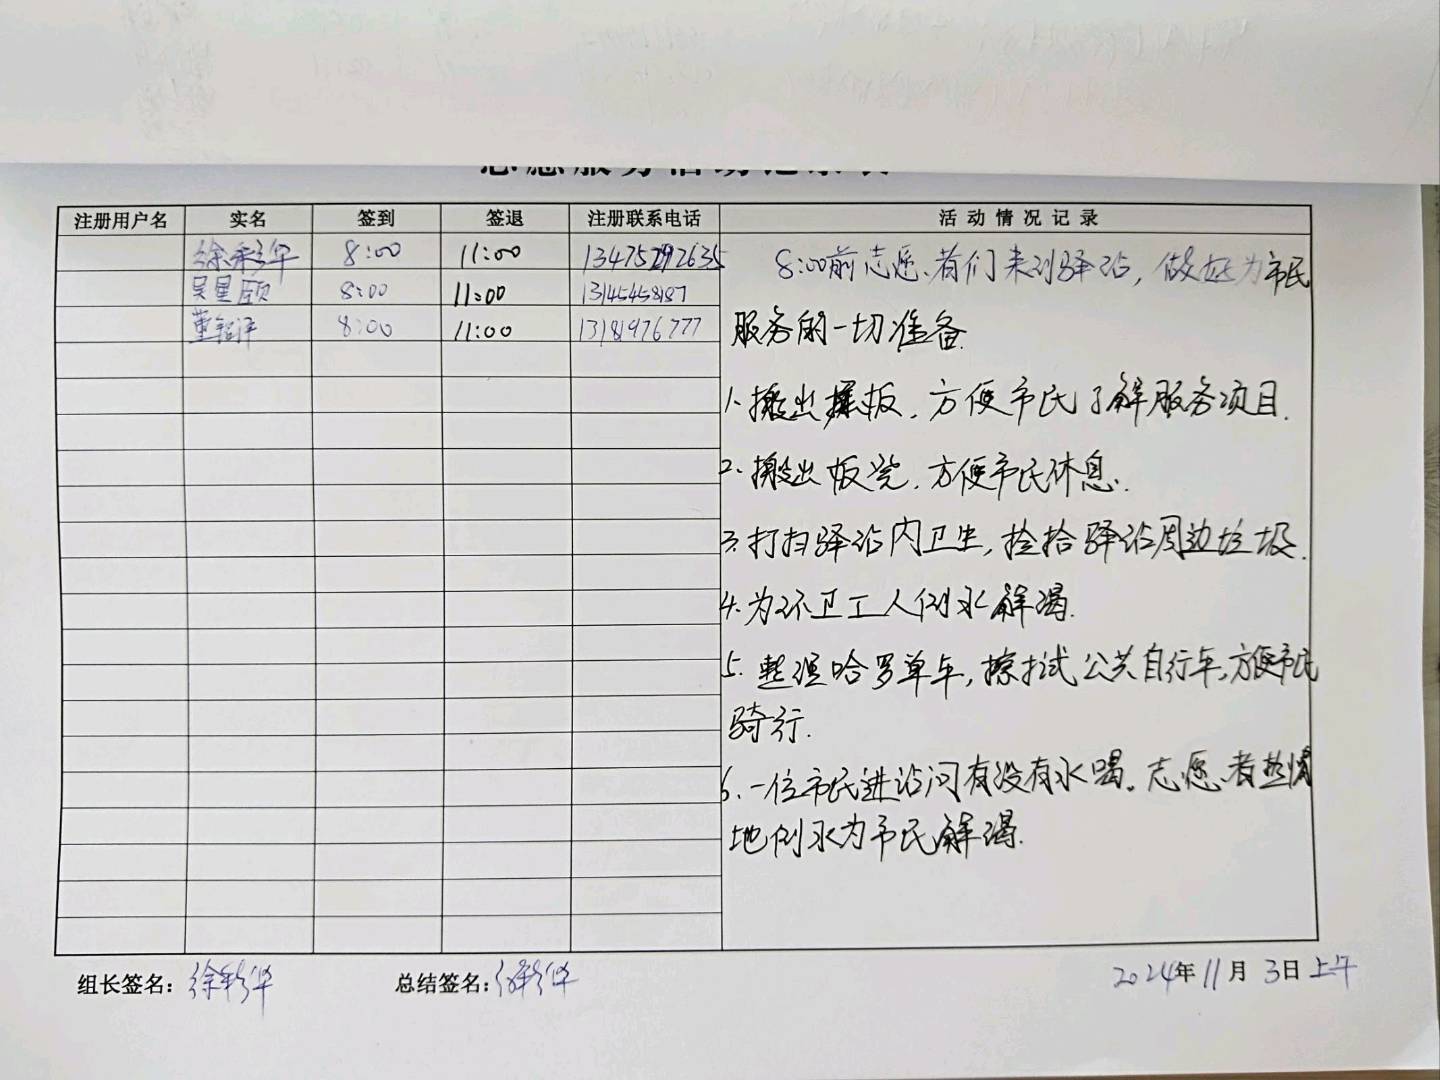 志愿服务活动记录表
注册用户名 实名 签到 签退 注册联系电话 活动情况记录
徐彩华 8:00 11:00
吴星颐 8:00 11:00 13145458187
董 8:00 11:00 13181976777
8:00前志愿者们来到驿站，做好为市民
服务的一切准备.
1.搬出展板，方便市民了解服务项目.
2.搬出板凳，方便市民休息.
3.打扫驿站内卫生，捡拾驿站周边垃圾.
4.为环卫工人倒水解渴.
5.整理哈罗单车，擦拭公共自行车，方便市民
骑行.
6.一位市民进站问有没有水喝。志愿者热情
地倒水为市民解渴.
组长签名：徐彩华 总结签名：徐彩华 2024年11月3日上午